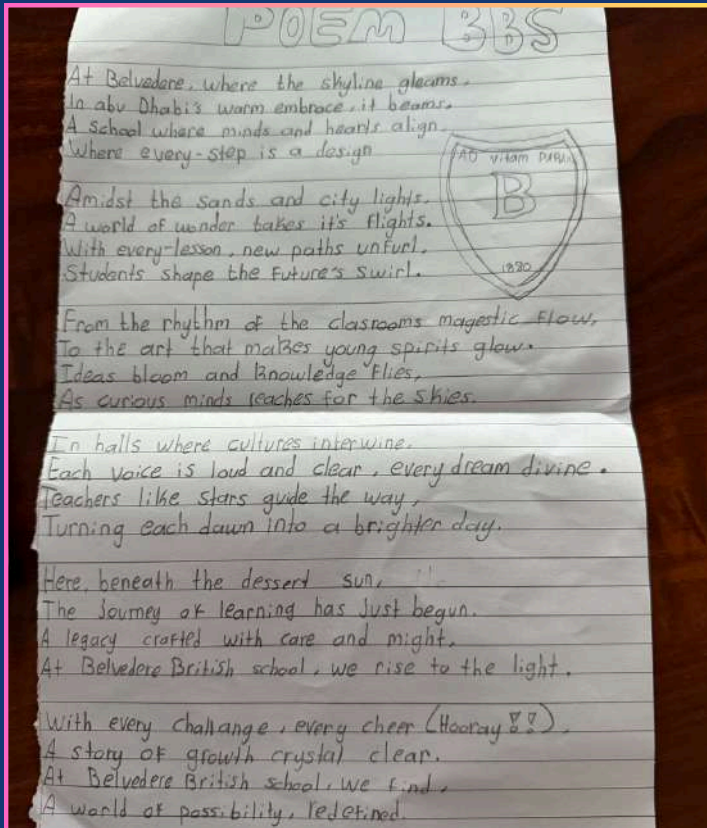 POEM BBS
At Belvedere, where the skyline gleams,
In abu Dhabi's warm embrace, it beams.
A school where minds and hearts align,
Where every-step is a design
AD vitam PARA
B
1880
Amidst the sands and city lights,
A world of wonder takes it's flights.
With every-lesson, new paths unfurl,
Students shape the Future's swirl.
From the rhythm of the clasrooms magestic flow,
To the art that makes young spirits glow.
Ideas bloom and knowledge flies,
As curious minds reaches for the skies.
In halls where cultures interwine,
Each voice is loud and clear, every dream divine.
Teachers like stars guide the way,
Turning each dawn into a brighter day.
Here, beneath the dessert sun,
The Journey of learning has Just begun.
A legacy crafted with care and might,
At Belvedere British school, we rise to the light.
With every challange, every cheer (Hooray!!),
A story of growth crystal clear.
At Belvedere British school, we find,
A world of possibility, redefined.